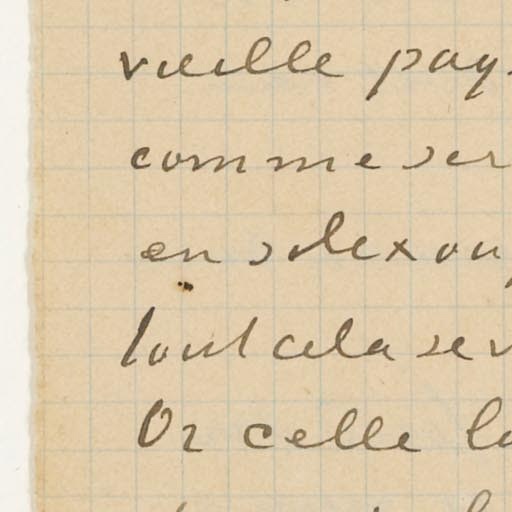 vieille pay
comme ser
en silex ou
tout cela ser
Or celle